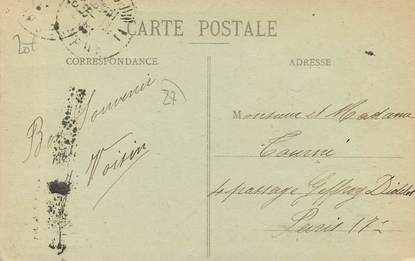 201
CARTE POSTALE
CORRESPONDANCE
ADRESSE
27
Bon Souvenir
Voisin
Monsieur et Madame
Tourné
4 passage Geffroy Didelot
Paris 17e